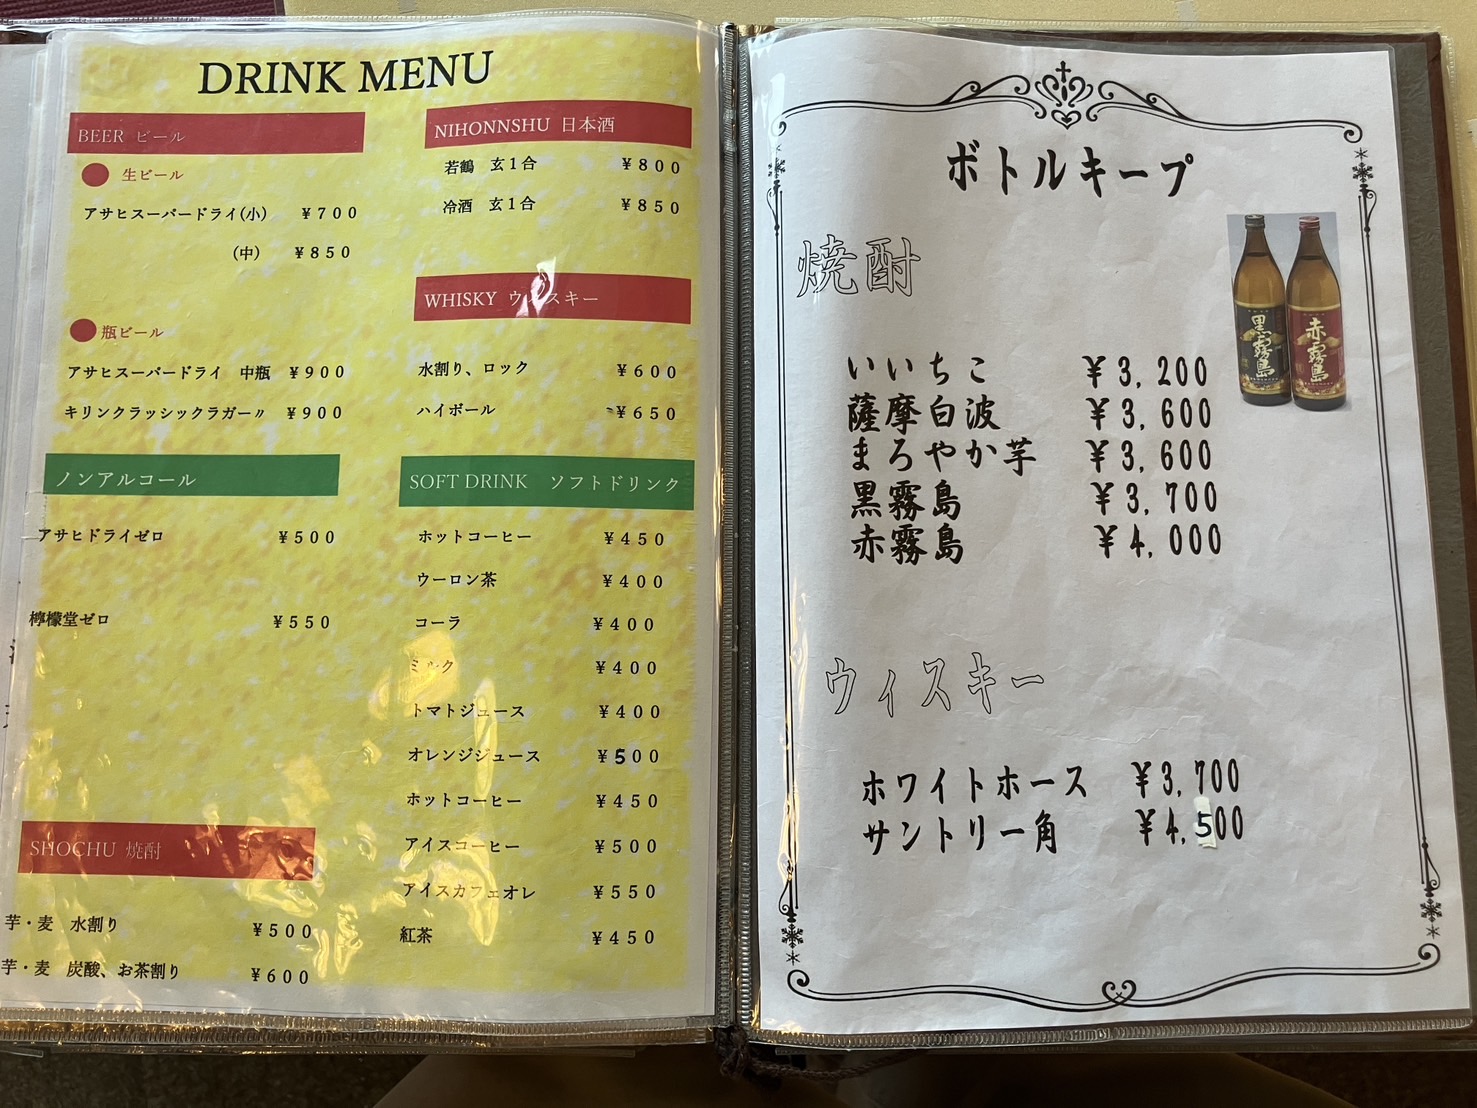 DRINK MENU
BEER ビール
生ビール
アサヒスーパードライ(小) ¥700
(中) ¥850
瓶ビール
アサヒスーパードライ 中瓶 ¥900
キリンクラッシックラガー〃 ¥900
ノンアルコール
アサヒドライゼロ ¥500
檸檬堂ゼロ ¥550
SHOCHU 焼酎
芋・麦 水割り ¥500
芋・麦 炭酸、お茶割り ¥600
NIHONNSHU 日本酒
若鶴 玄1合 ¥800
冷酒 玄1合 ¥850
WHISKY ウィスキー
水割り、ロック ¥600
ハイボール ¥650
SOFT DRINK ソフトドリンク
ホットコーヒー ¥450
ウーロン茶 ¥400
コーラ ¥400
ミルク ¥400
トマトジュース ¥400
オレンジジュース ¥500
ホットコーヒー ¥450
アイスコーヒー ¥500
アイスカフェオレ ¥550
紅茶 ¥450
ボトルキープ
焼酎
黒霧島
赤霧島
いいちこ ¥3,200
薩摩白波 ¥3,600
まろやか芋 ¥3,600
黒霧島 ¥3,700
赤霧島 ¥4,000
ウィスキー
ホワイトホース ¥3,700
サントリー角 ¥4,500